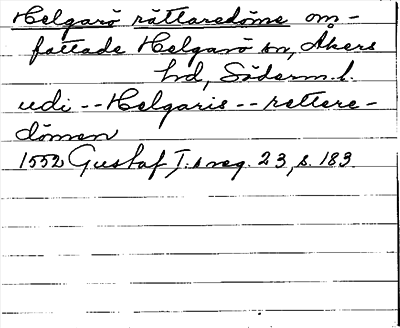 Helgarö rättaredöme om-
fattade Helgarö sn, Åkers
hd, Söderm. l.
udi -- Helgaris -- rettere-
dömen
1552 Gustaf I:s reg. 23, s. 183.